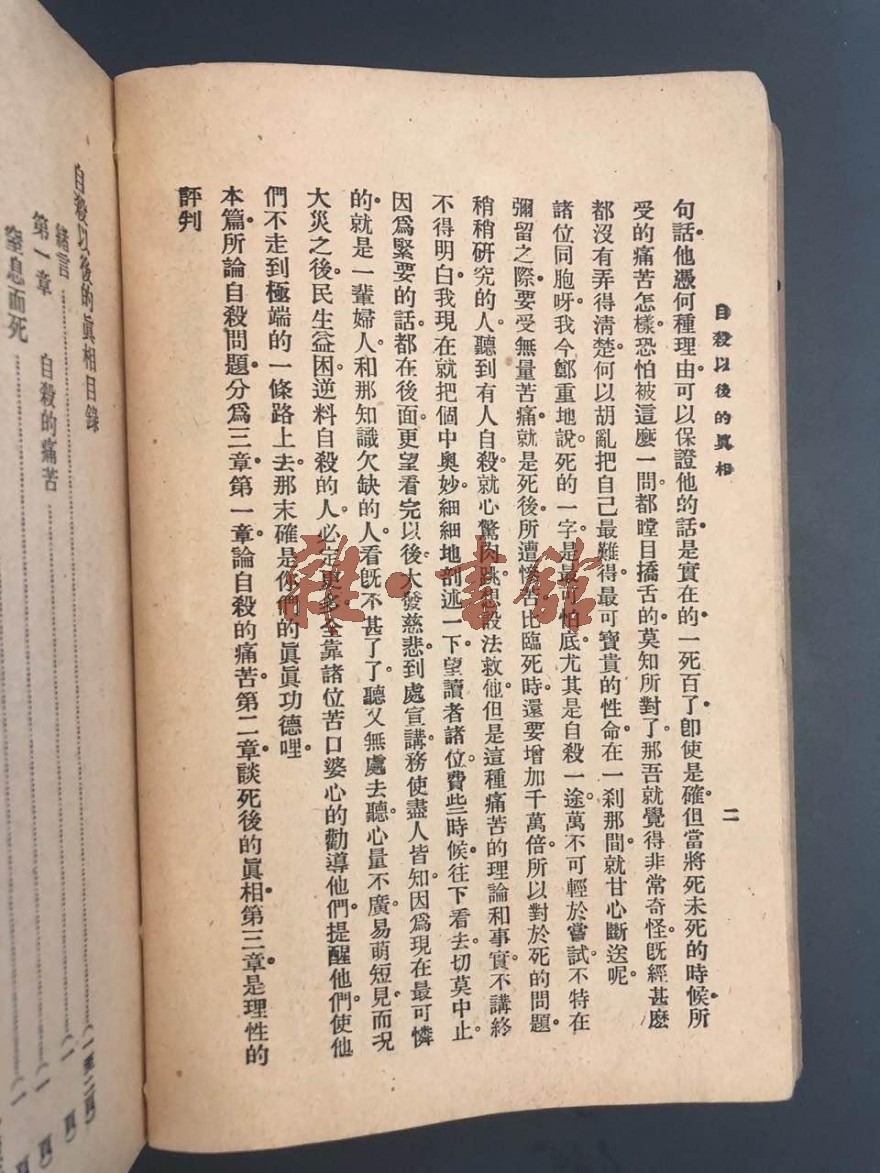 自殺以後的眞相
二
句話他憑何種理由可以保證他的話是實在的一死百了卽使是確但當將死未死的時候所
受的痛苦怎樣恐怕被這麼一問都瞠目撟舌的莫知所對了那吾就覺得非常奇怪旣經甚麼
都沒有弄得淸楚何以胡亂把自己最難得最可寶貴的性命在一刹那間就甘心斷送呢
諸位同胞呀我今鄭重地說死的一字是最可怕底尤其是自殺一途萬不可輕於嘗試不特在
彌留之際要受無量苦痛就是死後所遭慘苦比臨死時還要增加千萬倍所以對於死的問題
稍稍硏究的人聽到有人自殺就心驚肉跳想設法救他但是這種痛苦的理論和事實不講終
不得明白我現在就把個中奧妙細細地剖述一下望讀者諸位費些時候往下看去切莫中止
因爲緊要的話都在後面更望看完以後大發慈悲到處宣講務使盡人皆知因爲現在最可憐
的就是一輩婦人和那知識欠缺的人看旣不甚了了聽又無處去聽心量不廣易萌短見而况
大災之後民生益困逆料自殺的人必定更多全靠諸位苦口婆心的勸導他們提醒他們使他
們不走到極端的一條路上去那末確是你們的眞眞功德哩
本篇所論自殺問題分爲三章第一章論自殺的痛苦第二章談死後的眞相第三章是理性的
評判
自殺以後的眞相目錄
緒言
第一章 自殺的痛苦
窒息而死
雜·書館